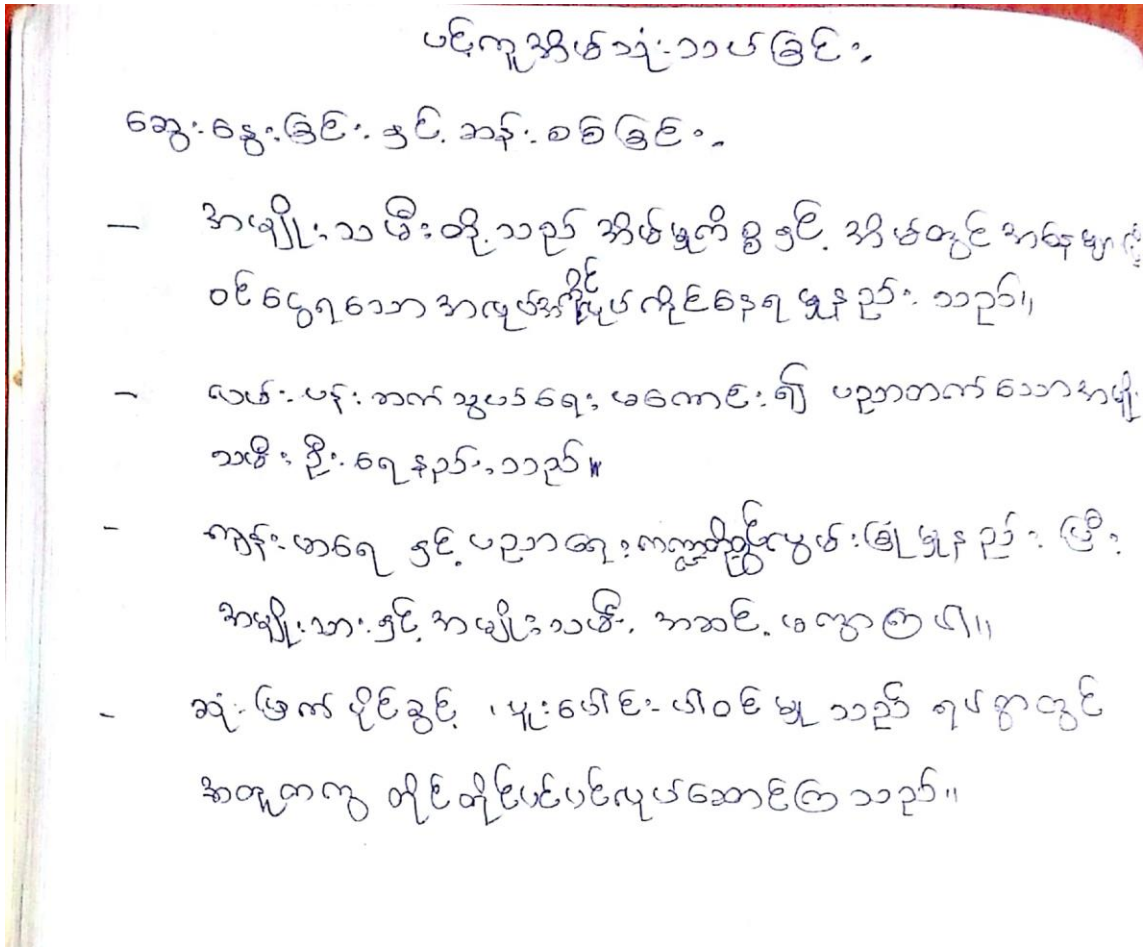 ပင့်ကူအိမ်သုံးသပ်ခြင်း
ဆွေးနွေးခြင်းနှင့် ဆန်းစစ်ခြင်း
- အမျိုးသမီးတို့သည် အိမ်မှုကိစ္စနှင့် အိမ်တွင်အနေများလို့
ဝင်ငွေရသောအလုပ်အကိုင်လုပ်ကိုင်နေရမှုနည်းသည်။
- လမ်းပန်းဆက်သွယ်ရေး မကောင်း၍ ပညာတက်သောအမျိုး
သမီးဦးရေနည်းသည်။
- ကျန်းမာရေ နှင့် ပညာရေးကဏ္ဍတို့တွင်လွမ်းခြုံမှုနည်းပြီး
အမျိုးသားနှင့်အမျိုးသမီး အဆင့်မကွာကြပါ။
- ဆုံးဖြတ်ပိုင်ခွင့်၊ ပူးပေါင်းပါဝင်မှုသည် ရပ်ရွာတွင်
အတူတကွ တိုင်တိုင်ပင်ပင်လုပ်ဆောင်ကြသည်။